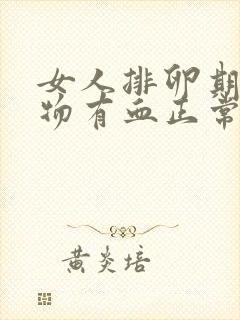 女人排卵期
物有血正常
黄炎培